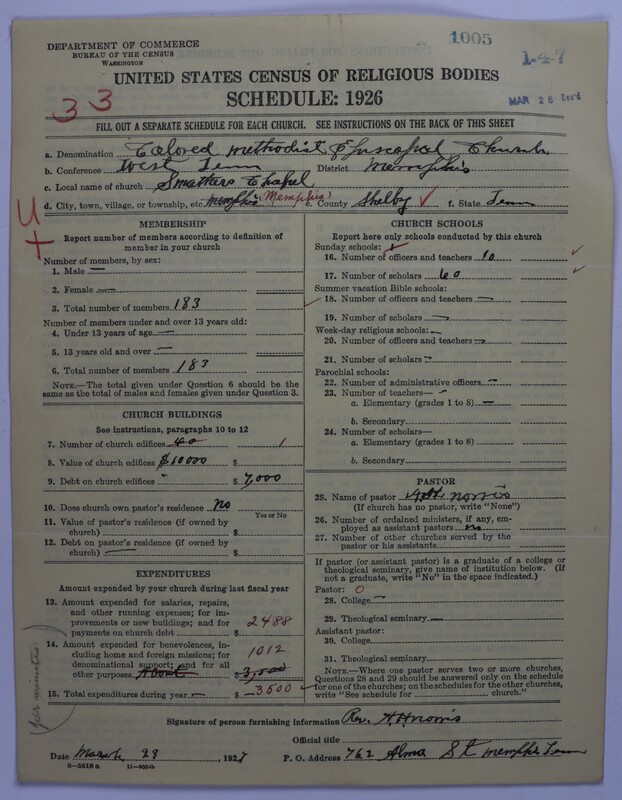 DEPARTMENT OF COMMERCE
BUREAU OF THE CENSUS
WASHINGTON
1005
1-47
UNITED STATES CENSUS OF RELIGIOUS BODIES
SCHEDULE: 1926
33
MAR 28 Rec'd
FILL OUT A SEPARATE SCHEDULE FOR EACH CHURCH. SEE INSTRUCTIONS ON THE BACK OF THIS SHEET
a. Denomination Colored methodist Episcopal Church
b. Conference West Tenn District Memphis
c. Local name of church Smothers Chapel
d. City, town, village, or township, etc. Memphis Memphis e. County Shelby f. State Tenn
MEMBERSHIP
Report number of members according to definition of
member in your church
Number of members, by sex:
1. Male —
2. Female —
3. Total number of members 183
Number of members under and over 13 years old:
4. Under 13 years of age —
5. 13 years old and over —
6. Total number of members 183
NOTE.—The total given under Question 6 should be the
same as the total of males and females given under Question 3.
CHURCH BUILDINGS
See instructions, paragraphs 10 to 12
7. Number of church edifices 1
8. Value of church edifices $10000 $
9. Debt on church edifices - $ 7,000
10. Does church own pastor's residence no
Yes or No
11. Value of pastor's residence (if owned by
church) $
12. Debt on pastor's residence (if owned by
church) — $
EXPENDITURES
Amount expended by your church during last fiscal year
13. Amount expended for salaries, repairs,
and other running expenses; for im-
provements or new buildings; and for
payments on church debt $ 2488
14. Amount expended for benevolences,
including home and foreign missions; for
denominational support; and for all
other purposes 1012
About $ 3,500
15. Total expenditures during year — $ 3500
(per minutes)
CHURCH SCHOOLS
Report here only schools conducted by this church
Sunday schools:
16. Number of officers and teachers 10
17. Number of scholars 60
Summer vacation Bible schools:
18. Number of officers and teachers —
19. Number of scholars —
Week-day religious schools: —
20. Number of officers and teachers —
21. Number of scholars —
Parochial schools:
22. Number of administrative officers —
23. Number of teachers—
a. Elementary (grades 1 to 8) —
b. Secondary
24. Number of scholars—
a. Elementary (grades 1 to 8)
b. Secondary
PASTOR
25. Name of pastor A H Norris
(If church has no pastor, write "None")
26. Number of ordained ministers, if any, em-
ployed as assistant pastors no
27. Number of other churches served by the
pastor or his assistants
If pastor (or assistant pastor) is a graduate of a college or
theological seminary, give name of institution below. (If
not a graduate, write "No" in the space indicated.)
Pastor: 0
28. College —
29. Theological seminary —
Assistant pastor:
30. College
31. Theological seminary
NOTE.—Where one pastor serves two or more churches,
Questions 28 and 29 should be answered only on the schedule
for one of the churches; on the schedules for the other churches,
write "See schedule for church."
Signature of person furnishing information Rev. A H Norris
Official title
Date March 28, 1927 P. O. Address 762 Alma St Memphis Tenn
8-5518a 11-9554b